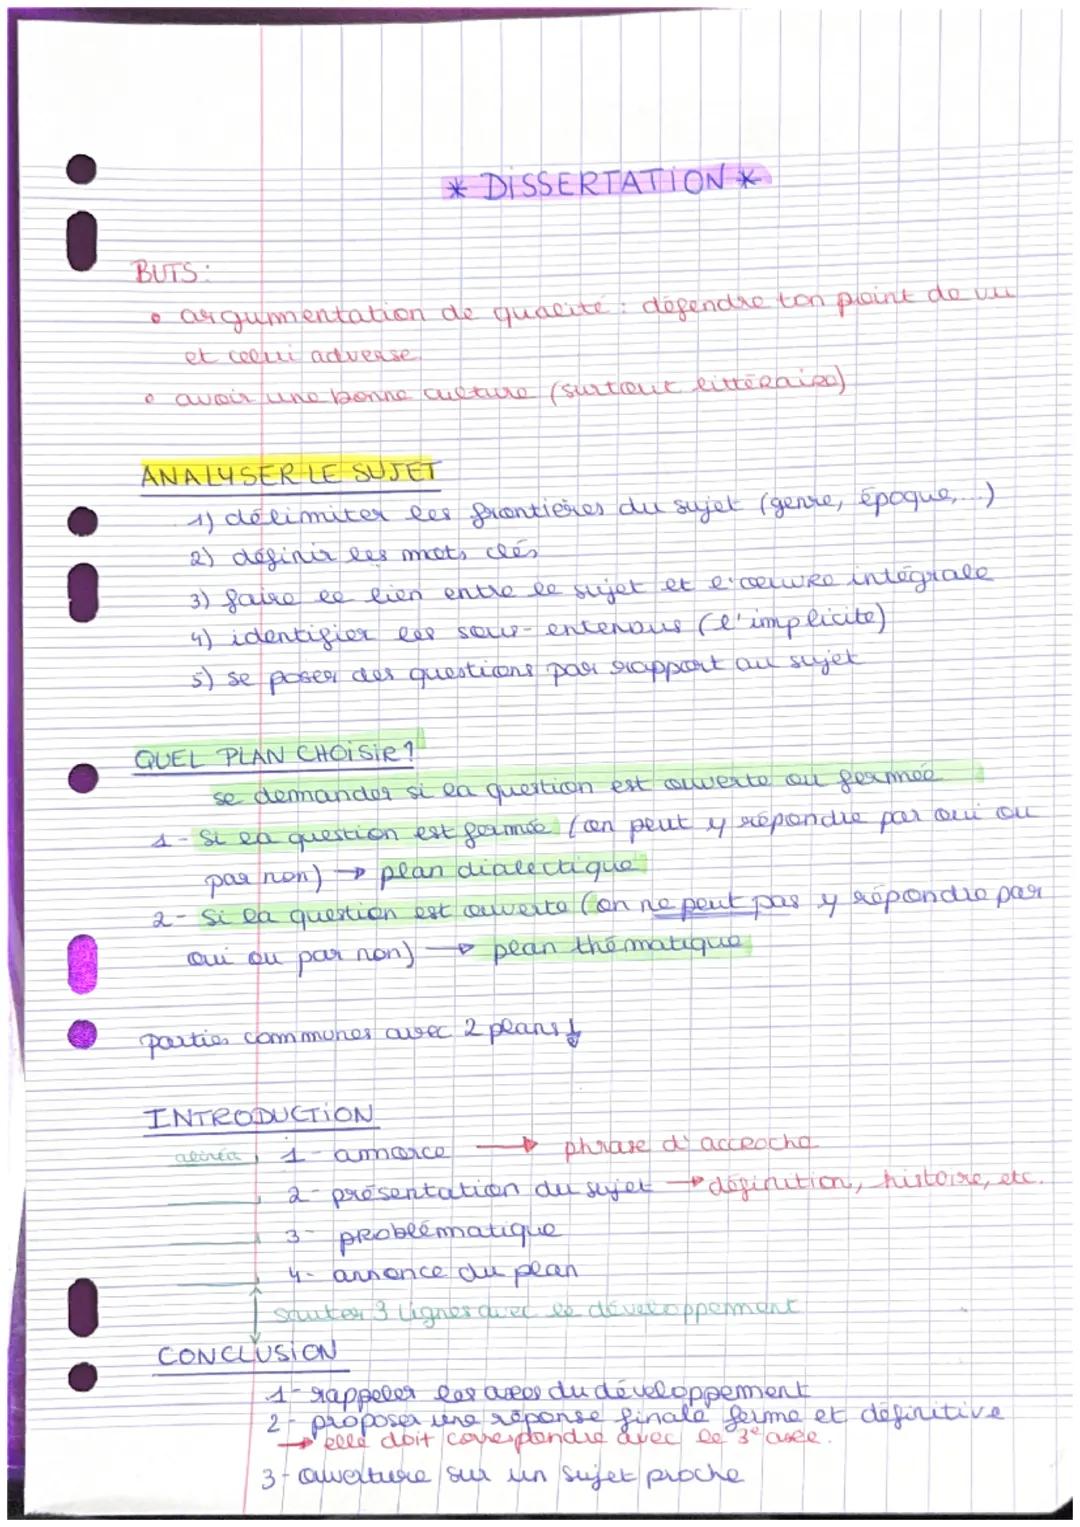 * DISSERTATION *
BUTS :
• argumentation de qualité : défendre ton point de vu
et celui adverse
• avoir une bonne culture (surtout littéraire)
ANALYSER LE SUJET
1) délimiter les frontières du sujet (genre, époque,...)
2) définir les mots clés
3) faire le lien entre le sujet et l'œuvre intégrale
4) identifier les sous-entendus (l'implicite)
5) se poser des questions par rapport au sujet
QUEL PLAN CHOISIR ?
se demander si la question est ouverte ou fermée
1 - Si la question est fermée (on peut y répondre par oui ou
par non) → plan dialectique
2 - Si la question est ouverte (on ne peut pas y répondre par
oui ou par non) → plan thématique
parties communes avec 2 plans ↓
INTRODUCTION
alinéa 1 - amorce → phrase d'accroche
2 - présentation du sujet → définition, histoire, etc.
3 - problématique
4 - annonce du plan
sauter 3 lignes avec le développement
CONCLUSION
1 - rappeler les axes du développement
2 - proposer une réponse finale ferme et définitive
→ elle doit correspondre avec le 3e axe.
3 - ouverture sur un sujet proche